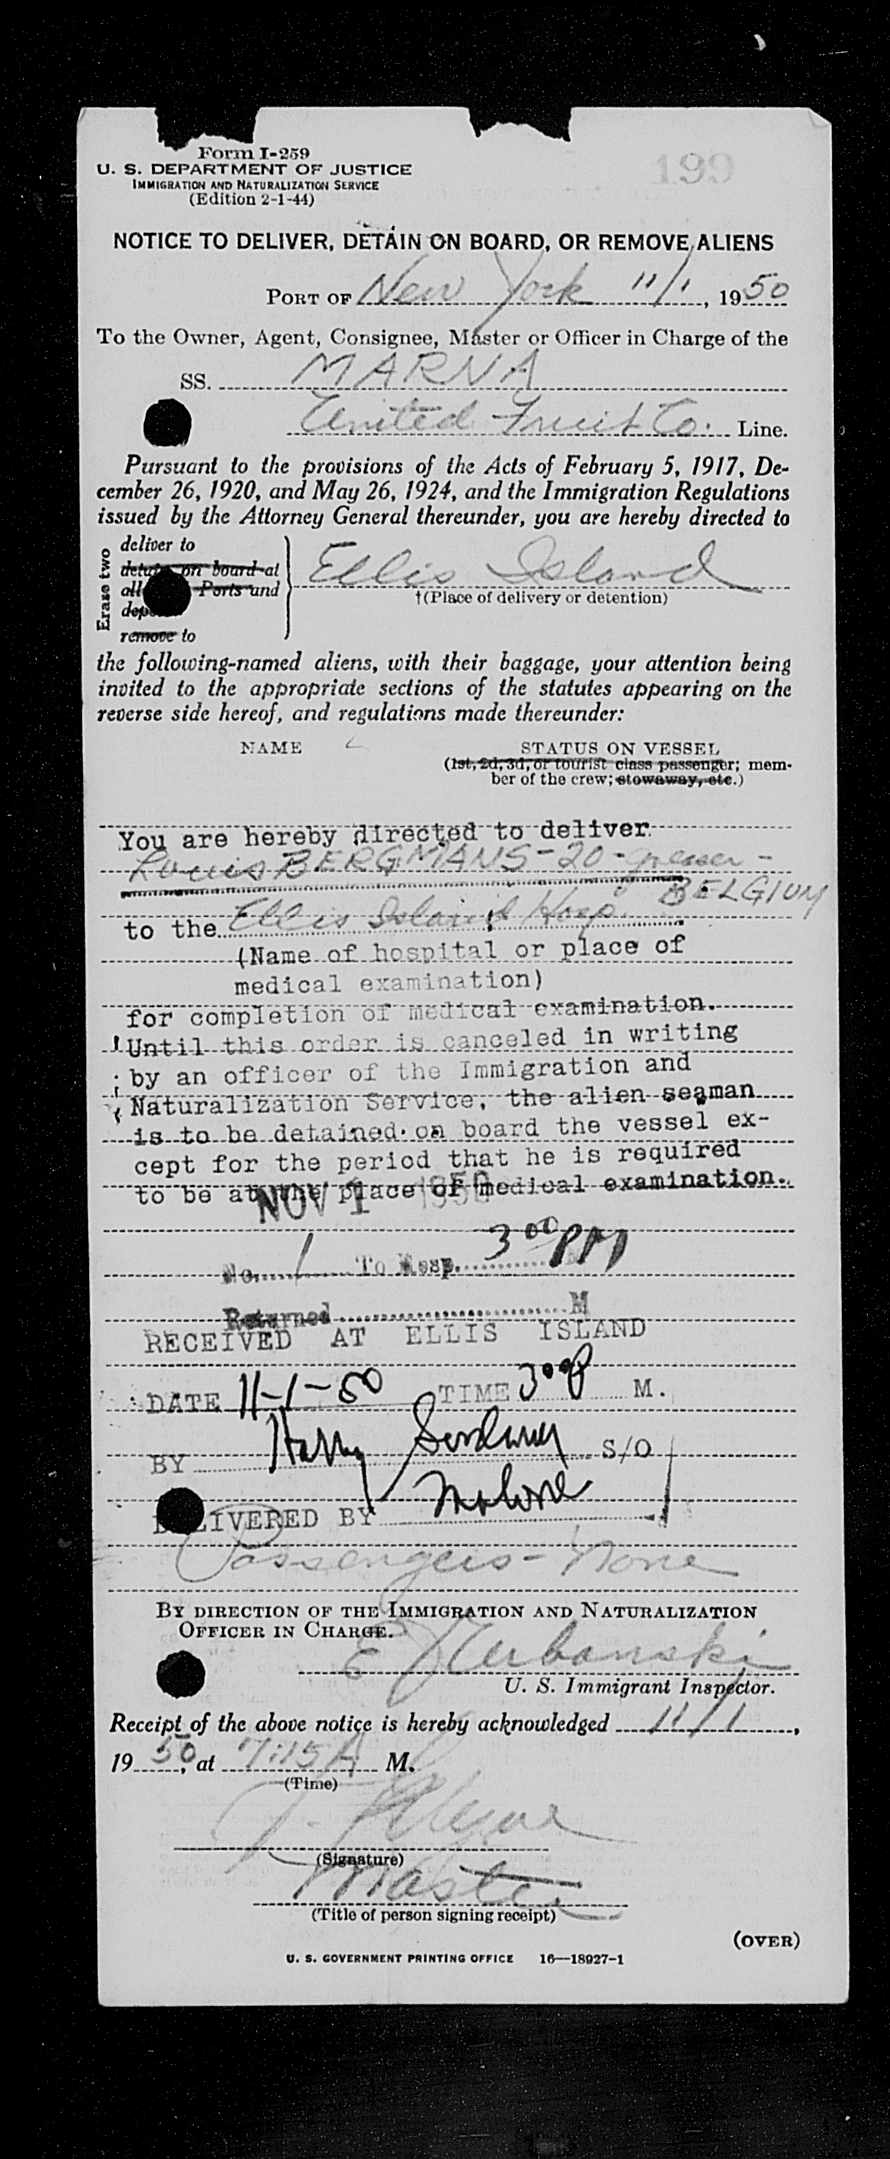 Form I-259
199
U. S. DEPARTMENT OF JUSTICE
IMMIGRATION AND NATURALIZATION SERVICE
(Edition 2-1-44)
NOTICE TO DELIVER, DETAIN ON BOARD, OR REMOVE ALIENS
PORT OF New York 11/1, 1950
To the Owner, Agent, Consignee, Master or Officer in Charge of the
SS. MARNA
United Fruit Co. Line.
Pursuant to the provisions of the Acts of February 5, 1917, De-
cember 26, 1920, and May 26, 1924, and the Immigration Regulations
issued by the Attorney General thereunder, you are hereby directed to
Erase two
deliver to
detain on board at
all Ports and
remove to
Ellis Island
†(Place of delivery or detention)
the following-named aliens, with their baggage, your attention being
invited to the appropriate sections of the statutes appearing on the
reverse side hereof, and regulations made thereunder:
NAME STATUS ON VESSEL
(1st, 2d, 3d, or tourist class passenger; mem-
ber of the crew; stowaway, etc.)
You are hereby directed to deliver
Louis BERGMANS - 20 - greaser -
BELGIUM
to the Ellis Island Hosp.
(Name of hospital or place of
medical examination)
for completion of medical examination.
Until this order is canceled in writing
by an officer of the Immigration and
Naturalization Service, the alien seaman
is to be detained on board the vessel ex-
cept for the period that he is required
to be at the place of medical examination.
NOV 1 1950
No. 1 To Hosp. 3 00 PM
Returned M
RECEIVED AT ELLIS ISLAND
DATE 11-1-50 TIME 3 00 P M.
BY Harry S/O
DELIVERED BY Malone
Passengers - None
BY DIRECTION OF THE IMMIGRATION AND NATURALIZATION
OFFICER IN CHARGE.
E J Urbanski
U. S. Immigrant Inspector.
Receipt of the above notice is hereby acknowledged 11/1,
1950, at 7:15 A M.
(Time)
(Signature)
Master
(Title of person signing receipt)
(OVER)
U. S. GOVERNMENT PRINTING OFFICE 16—18927-1